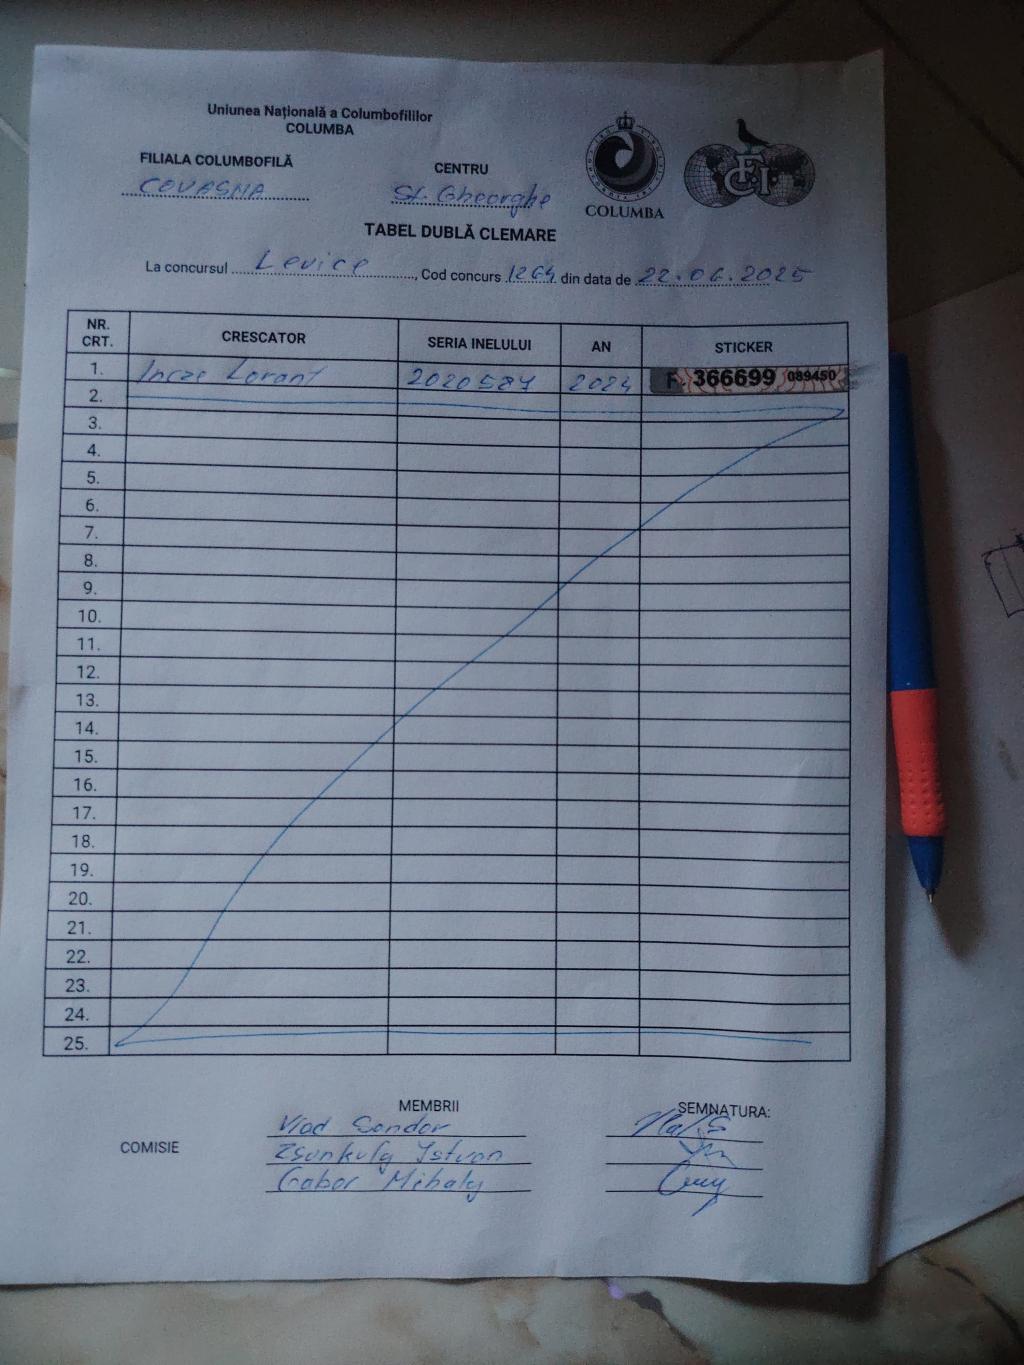 Uniunea Națională a Columbofililor
COLUMBA
FILIALA COLUMBOFILĂ
CENTRU
COVASNA
Sf. Gheorghe
COLUMBA
F.C.I.
TABEL DUBLĂ CLEMARE
La concursul Levice, Cod concurs 1264 din data de 22.06.2025
NR. CRT. CRESCATOR SERIA INELULUI AN STICKER
1. Incze Lorant 2020587 2024 F 366699 089450
2.
3.
4.
5.
6.
7.
8.
9.
10.
11.
12.
13.
14.
15.
16.
17.
18.
19.
20.
21.
22.
23.
24.
25.
MEMBRII
SEMNATURA:
COMISIE
Vlad Sandor
Istvan
Gabor Mihaly